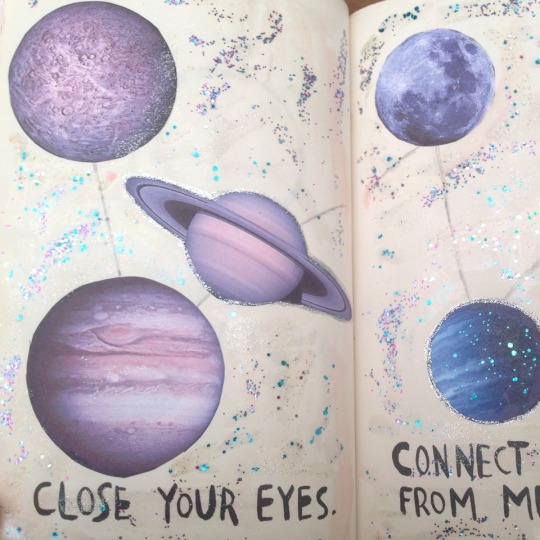 CLOSE YOUR EYES.
CONNECT
FROM